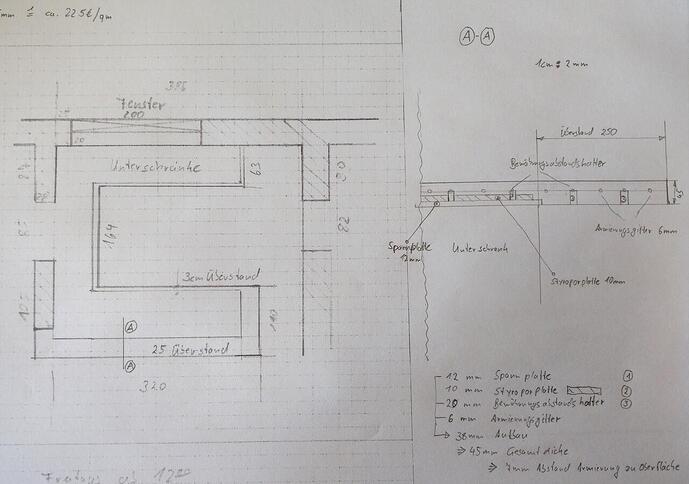 mm ≙ ca. 225€/qm
386
Fenster
200
20
Unterschränke
63
80
164
82
3cm Überstand
A
A
25 Überstand
320
Freitag ab 12⁰⁰
A-A
1cm ≙ 2mm
Überstand 250
Bewährungsabstandshalter
45
Armierungsgitter 6mm
Spannplatte
12mm
Unterschrank
Styroporplatte 10mm
12 mm Spannplatte 1
10 mm Styroporplatte 2
20 mm Bewährungsabstandshalter 3
6 mm Armierungsgitter
→ 38mm Aufbau
⇒ 45mm Gesamtdicke
⇒ 7mm Abstand Armierung zu Oberfläche